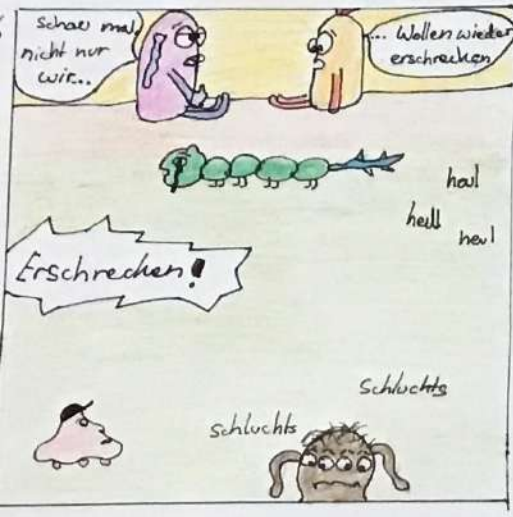 Schau mal
nicht nur
wir...
... Wollen wieder
erschrecken
heul
heull
heul
Erschrecken!
Schluchts
schluchts